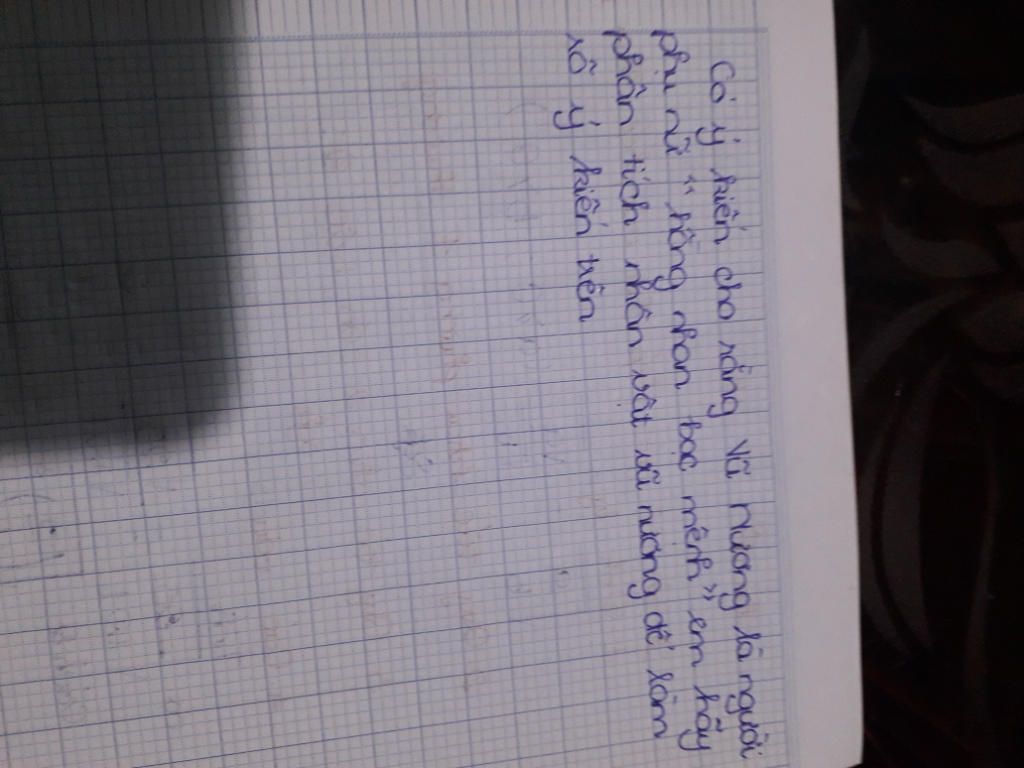 Có ý kiến cho rằng Vũ Nương là người
phụ nữ "hồng nhan bạc mệnh" em hãy
phân tích nhân vật vũ nương để làm
rõ ý kiến trên